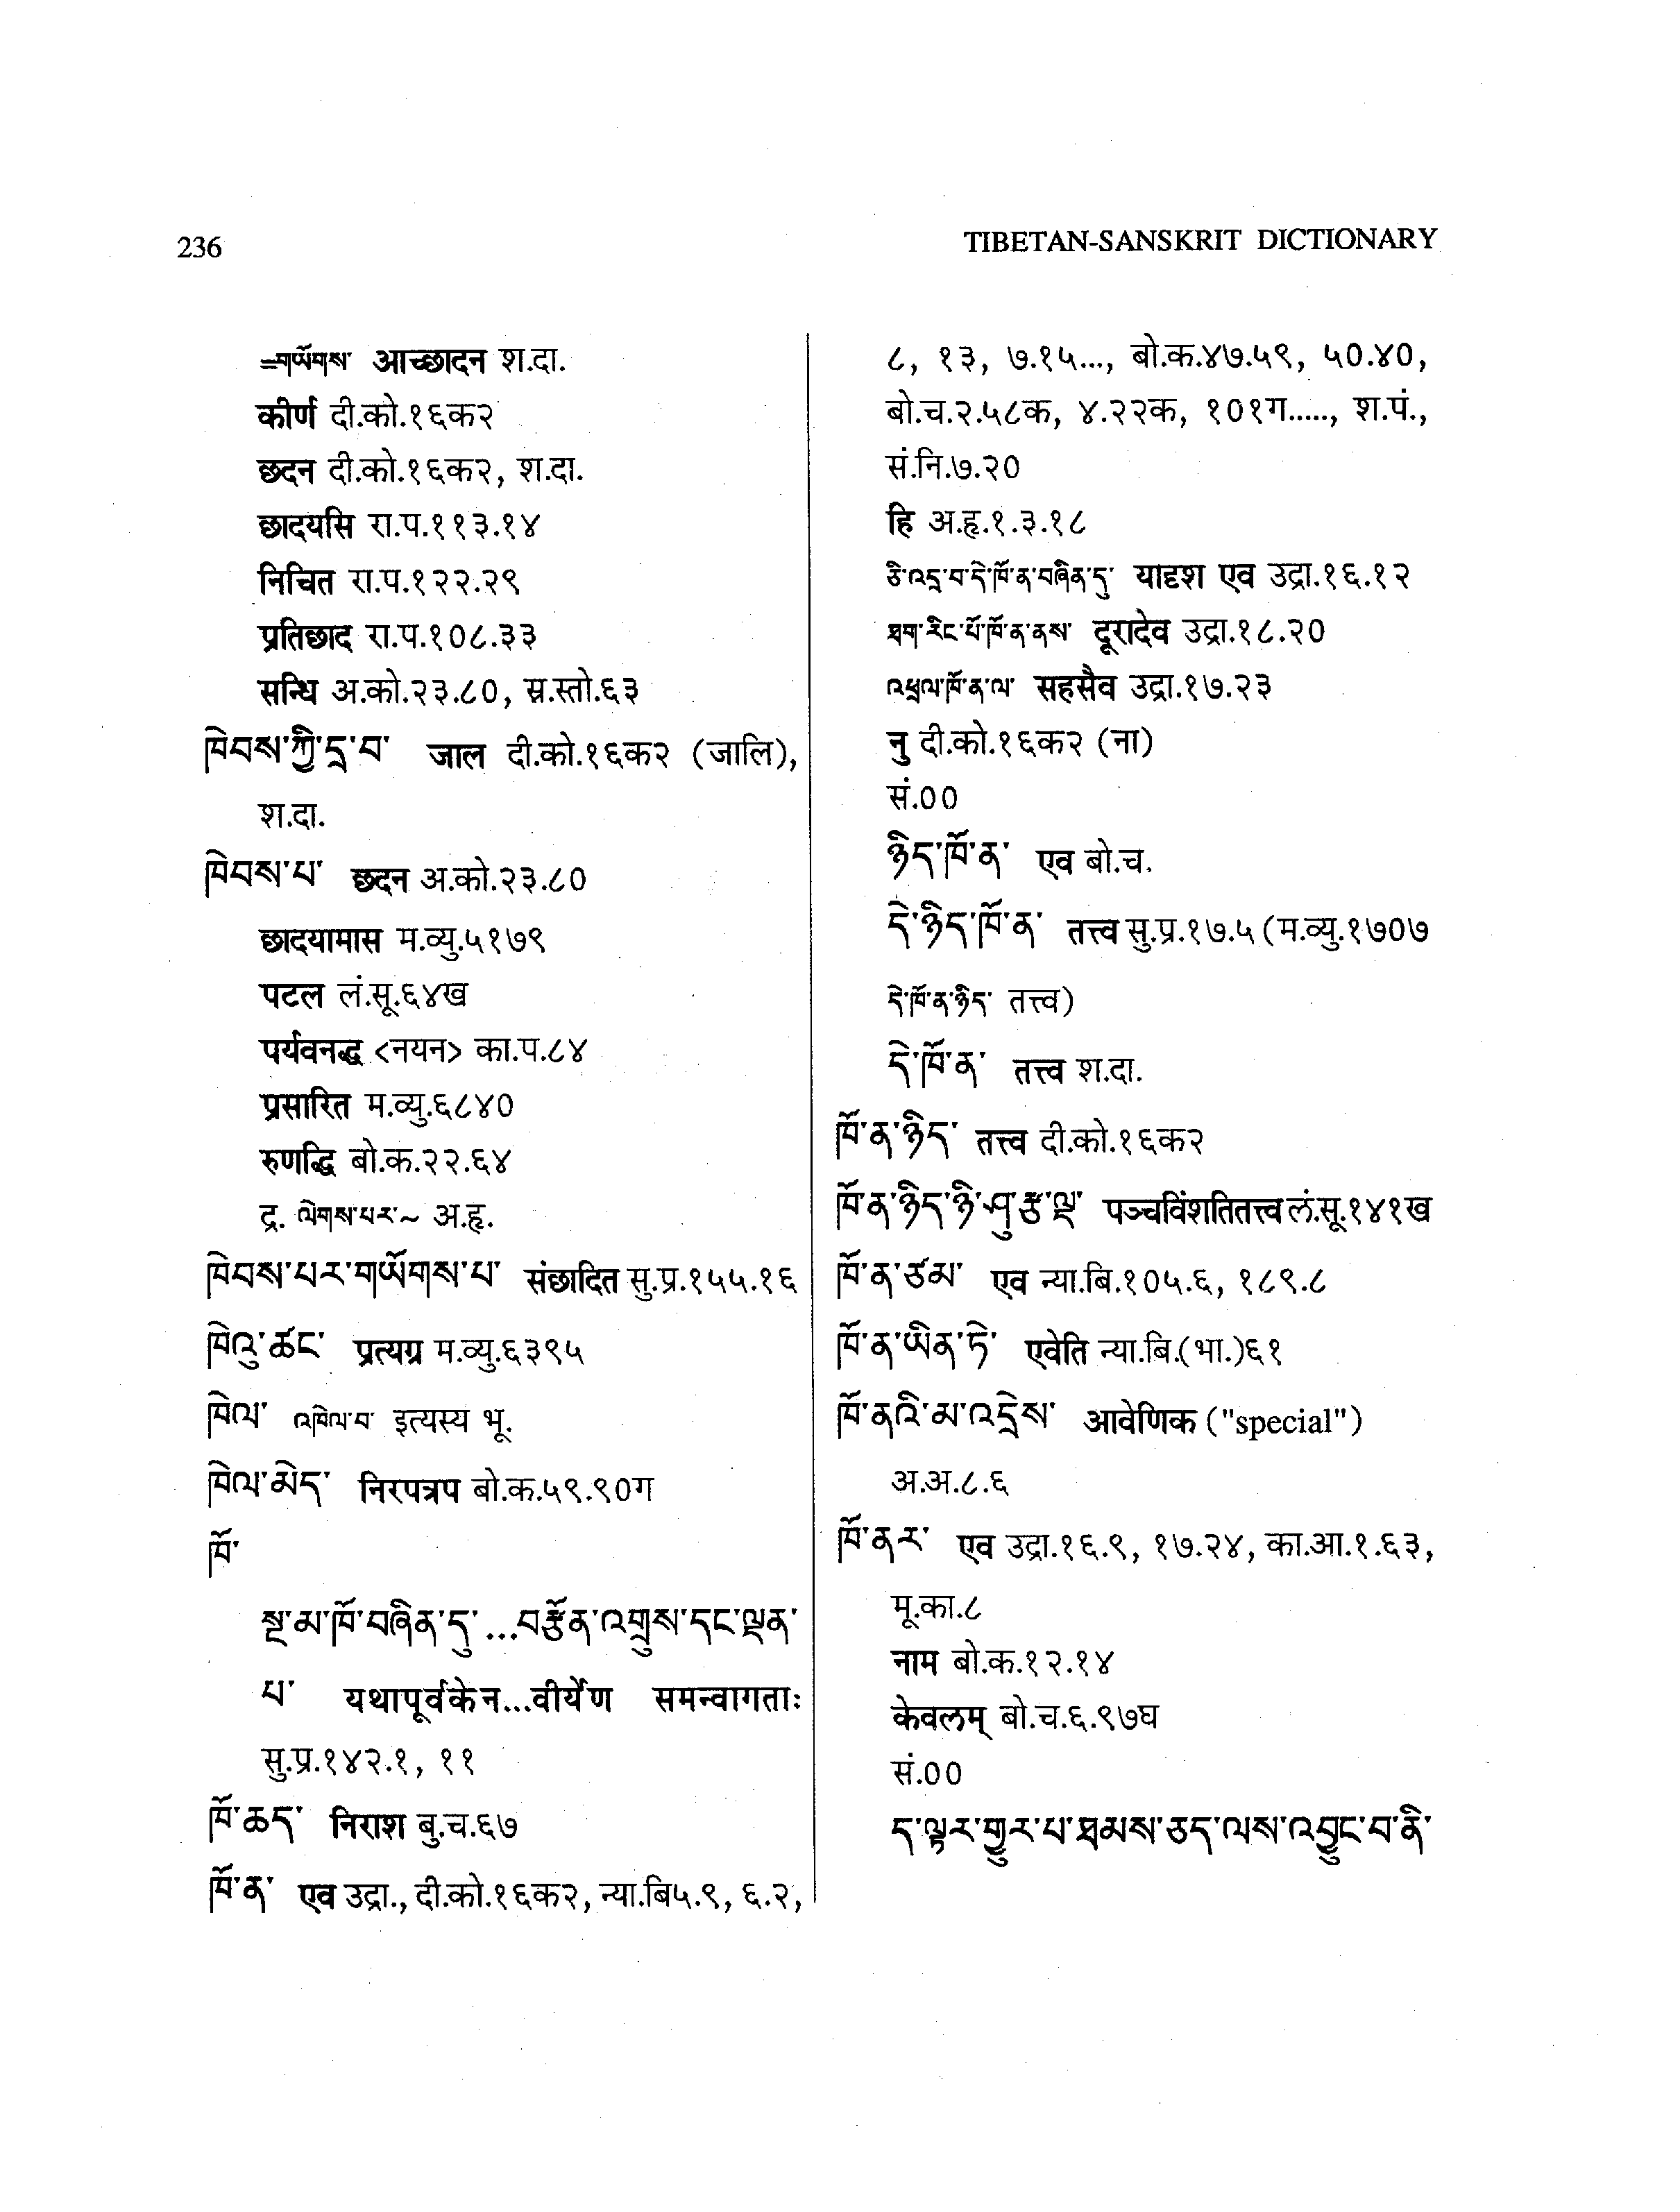 236
TIBETAN-SANSKRIT DICTIONARY
=གཡོགས་ आच्छादन श.दा.
कीर्ण दी.को.१६क२
छदन दी.को.१६क२, श.दा.
छादयसि रा.प.११३.१४
निचित रा.प.१२२.२९
प्रतिछाद रा.प.१०८.३३
सन्धि अ.को.२३.८०, स्र.स्तो.६३
ཁེབས་ཀྱི་དྲ་བ་ जाल दी.को.१६क२ (जालि),
श.दा.
ཁེབས་པ་ छदन अ.को.२३.८०
छादयामास म.व्यु.५१७९
पटल लं.सू.६४ख
पर्यवनद्ध <नयन> का.प.८४
प्रसारित म.व्यु.६८४०
रुणद्धि बो.क.२२.६४
द्र. ལེགས་པར་~ अ.हृ.
ཁེབས་པར་གཡོགས་པ་ संछादित सु.प्र.१५५.१६
ཁེའུ་ཚང་ प्रत्यग्र म.व्यु.६३९५
ཁེལ་ འཁེལ་བ་ इत्यस्य भू.
ཁེལ་མེད་ निरपत्रप बो.क.५९.९०ग
ཁོ་
སྔ་མ་ཁོ་བཞིན་དུ་...བརྩོན་འགྲུས་དང་ལྡན་
པ་ यथापूर्वकेन...वीर्येण समन्वागताः
सु.प्र.१४२.१, ११
ཁོ་ཆད་ निराश बु.च.६७
ཁོ་ན་ एव उद्रा., दी.को.१६क२, न्या.बि५.९, ६.२,
८, १३, ७.१५..., बो.क.४७.५९, ५०.४०,
बो.च.२.५८क, ४.२२क, १०१ग....., श.पं.,
सं.नि.७.२०
हि अ.हृ.१.३.१८
ཅི་འདྲ་བ་དེ་ཁོ་ན་བཞིན་དུ་ यादृश एव उद्रा.१६.१२
ཐག་རིང་པོ་ཁོ་ན་ནས་ दूरादेव उद्रा.१८.२०
འཕྲལ་ཁོ་ན་ལ་ सहसैव उद्रा.१७.२३
नु दी.को.१६क२ (ना)
सं.००
ཉིད་ཁོ་ན་ एव बो.च.
དེ་ཉིད་ཁོ་ན་ तत्त्व सु.प्र.१७.५ (म.व्यु.१७०७
དེ་ཁོ་ན་ཉིད་ तत्त्व)
དེ་ཁོ་ན་ तत्त्व श.दा.
ཁོ་ན་ཉིད་ तत्त्व दी.को.१६क२
ཁོ་ན་ཉིད་ཉི་ཤུ་རྩ་ལྔ་ पञ्चविंशतितत्त्व लं.सू.१४१ख
ཁོ་ན་ཙམ་ एव न्या.बि.१०५.६, १८९.८
ཁོ་ན་ཡིན་ཏེ་ एवेति न्या.बि.(भा.)६१
ཁོ་ནའི་མ་འདྲེས་ आवेणिक ("special")
अ.अ.८.६
ཁོ་ནར་ एव उद्रा.१६.९, १७.२४, का.आ.१.६३,
मू.का.८
नाम बो.क.१२.१४
केवलम् बो.च.६.९७घ
सं.००
ད་ལྟར་གྱུར་པ་ཐམས་ཅད་ལས་འབྱུང་བ་ནི་